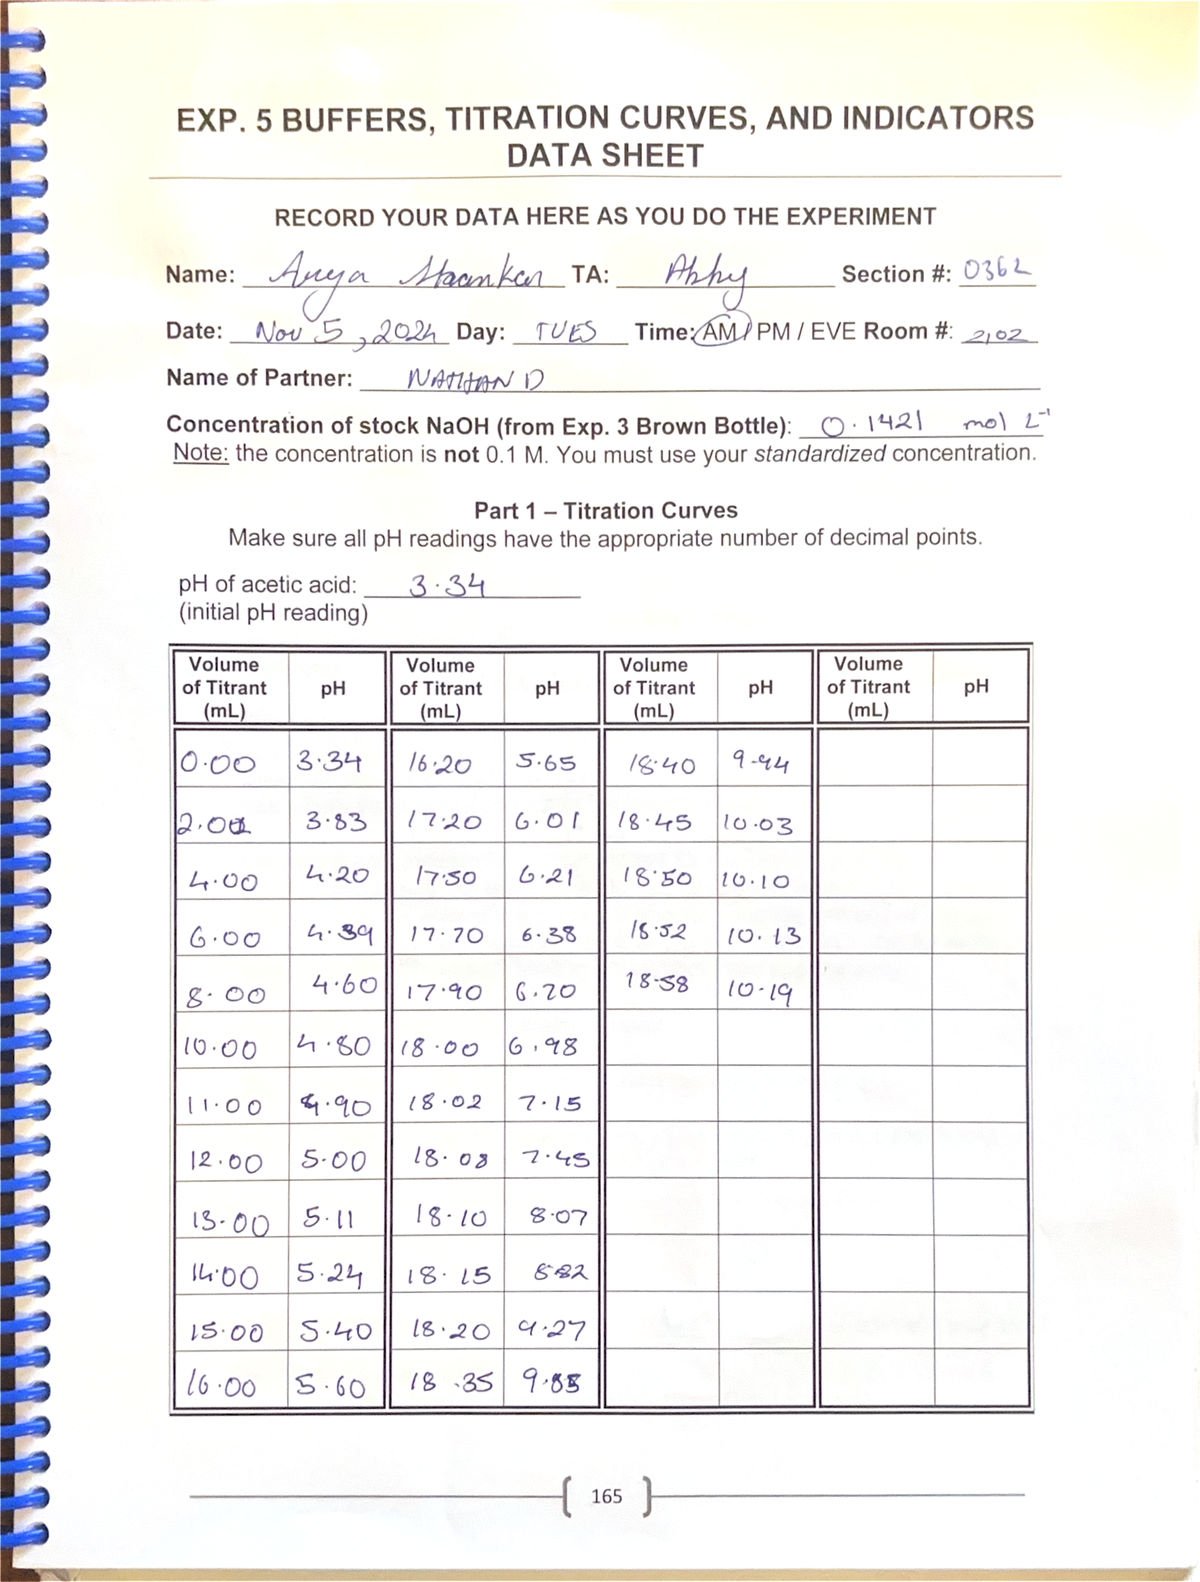 EXP. 5 BUFFERS, TITRATION CURVES, AND INDICATORS
DATA SHEET
RECORD YOUR DATA HERE AS YOU DO THE EXPERIMENT
Name: Anya TA: Abhy Section #: 0362
Date: Nov 5, 2024 Day: TUES Time: AM / PM / EVE Room #: 2,02
Name of Partner: NATHAN D
Concentration of stock NaOH (from Exp. 3 Brown Bottle): 0.1421 mol L⁻¹
Note: the concentration is not 0.1 M. You must use your standardized concentration.
Part 1 – Titration Curves
Make sure all pH readings have the appropriate number of decimal points.
pH of acetic acid: 3.34
(initial pH reading)
Volume of Titrant (mL) pH Volume of Titrant (mL) pH Volume of Titrant (mL) pH Volume of Titrant (mL) pH
0.00 3.34 16.20 5.65 18.40 9.94
2.00 3.83 17.20 6.01 18.45 10.03
4.00 4.20 17.50 6.21 18.50 10.10
6.00 4.39 17.70 6.38 18.52 10.13
8.00 4.60 17.90 6.70 18.58 10.19
10.00 4.80 18.00 6.98
11.00 4.90 18.02 7.15
12.00 5.00 18.08 7.45
13.00 5.11 18.10 8.07
14.00 5.24 18.15 8.82
15.00 5.40 18.20 9.27
16.00 5.60 18.35 9.85
165